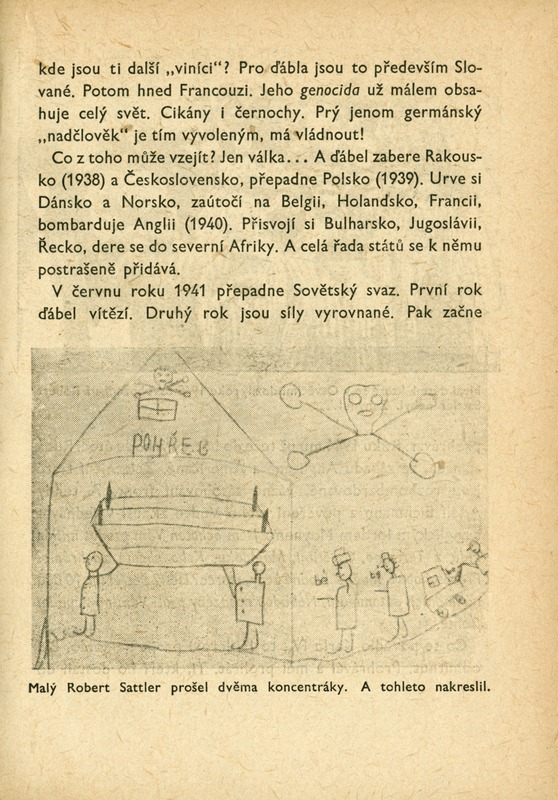 kde jsou ti další „viníci“? Pro ďábla jsou to především Slo-
vané. Potom hned Francouzi. Jeho genocida už málem obsa-
huje celý svět. Cikány i černochy. Prý jenom germánský
„nadčlověk“ je tím vyvoleným, má vládnout!
Co z toho může vzejít? Jen válka... A ďábel zabere Rakous-
ko (1938) a Československo, přepadne Polsko (1939). Urve si
Dánsko a Norsko, zaútočí na Belgii, Holandsko, Francii,
bombarduje Anglii (1940). Přisvojí si Bulharsko, Jugoslávii,
Řecko, dere se do severní Afriky. A celá řada států se k němu
postrašeně přidává.
V červnu roku 1941 přepadne Sovětský svaz. První rok
ďábel vítězí. Druhý rok jsou síly vyrovnané. Pak začne
POHŘEB
Malý Robert Sattler prošel dvěma koncentráky. A tohleto nakreslil.